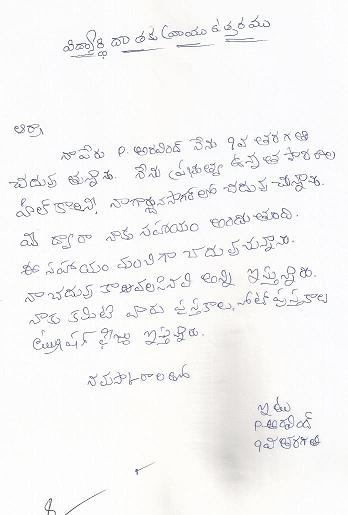 విద్యార్థి దాతకు వ్రాయు ఉత్తరము
ఆర్యా,
నా పేరు P. అరవింద్ నేను 9వ తరగతి
చదువుతున్నాను. నేను ప్రభుత్వ ఉన్నత పాఠశాల
హిల్ కాలని, నాగార్జునసాగర్‌లో చదువుచున్నాను.
మీ ద్వారా నాకు సహాయం అందుతుంది.
ఈ సహాయం మంచిగా చదువుచున్నాను.
నా చదువుకు కావలసినవి అన్ని ఇస్తున్నారు.
నాకు కమిటి వారు పుస్తకాలు, నోట్ పుస్తకాలు
ట్యూషన్ ఫీజు ఇస్తున్నారు.
నమస్కారాలతో
ఇట్లు
P. అరవింద్
9వ తరగతి